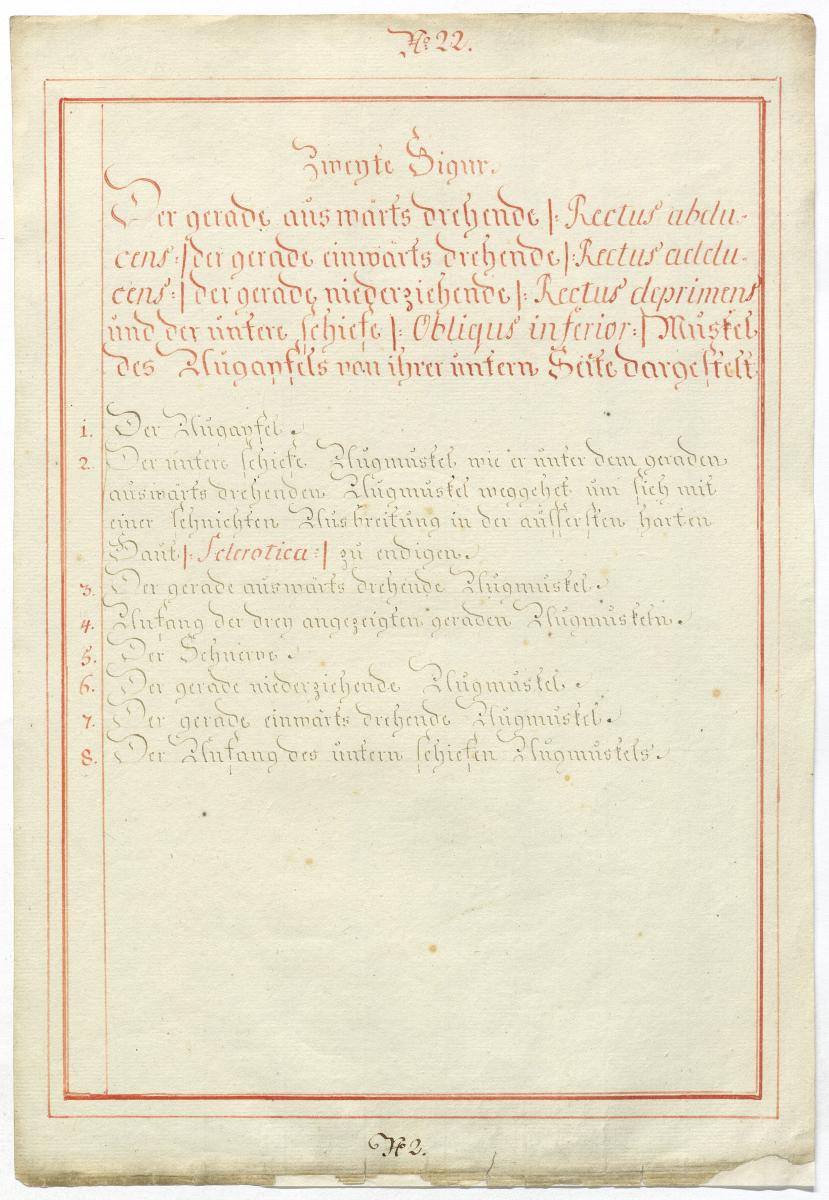 No 22.
Zweyte Figur.
Der gerade auswärts drehende |: Rectus abdu-
cens :| der gerade einwärts drehende |: Rectus addu-
cens :| der gerade niederziehende |: Rectus deprimens
und der untere schiefe |: Obliqus inferior :| Muskel
des Augapfels von ihrer untern Seite dargestelt
1. Der Augapfel.
2. Der untere schiefe Augmuskel wie er unter dem geraden
auswärts drehenden Augmuskel weggehet um sich mit
einer sehnichten Ausbreitung in der äussersten harten
Haut |: Sclerotica :| zu endigen.
3. Der gerade auswärts drehende Augmuskel.
4. Anfang der drey angezeigten geraden Augmuskeln.
5. Der Sehnerve.
6. Der gerade niederziehende Augmuskel.
7. Der gerade einwärts drehende Augmuskel.
8. Der Anfang des untern schiefen Augmuskels.
No 2.